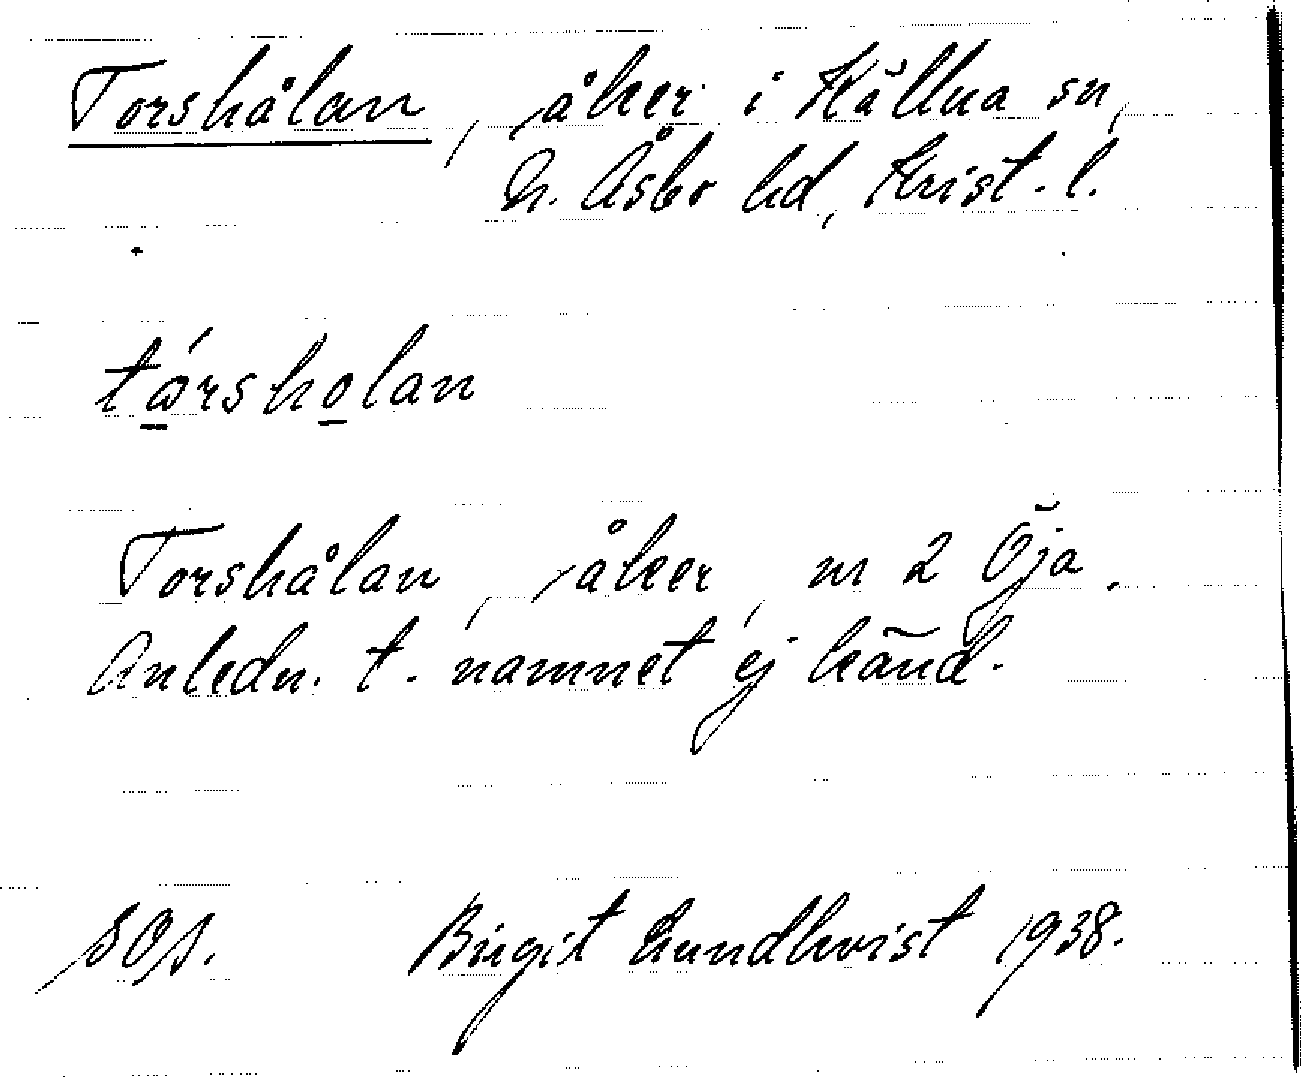 Torshålan, åker i Källna sn,
N. Åsbo hd, Krist. l.
tǿrsholan
Torshålan, åker, nr 2 Öja.
Anledn. t. namnet ej känd.
Birgit Lundkvist 1938.